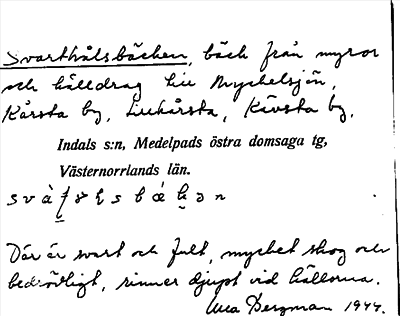 Svarthålsbäcken, bäck från myror
och källdrag till Myckelsjön,
Kårsta by, Liukårsta, Kävsta by.
Indals s:n, Medelpads östra domsaga tg,
Västernorrlands län.
Där är svart och fult, mycket skog och
bedrövligt, rinner djupt vid källorna.
Bergman 1944.